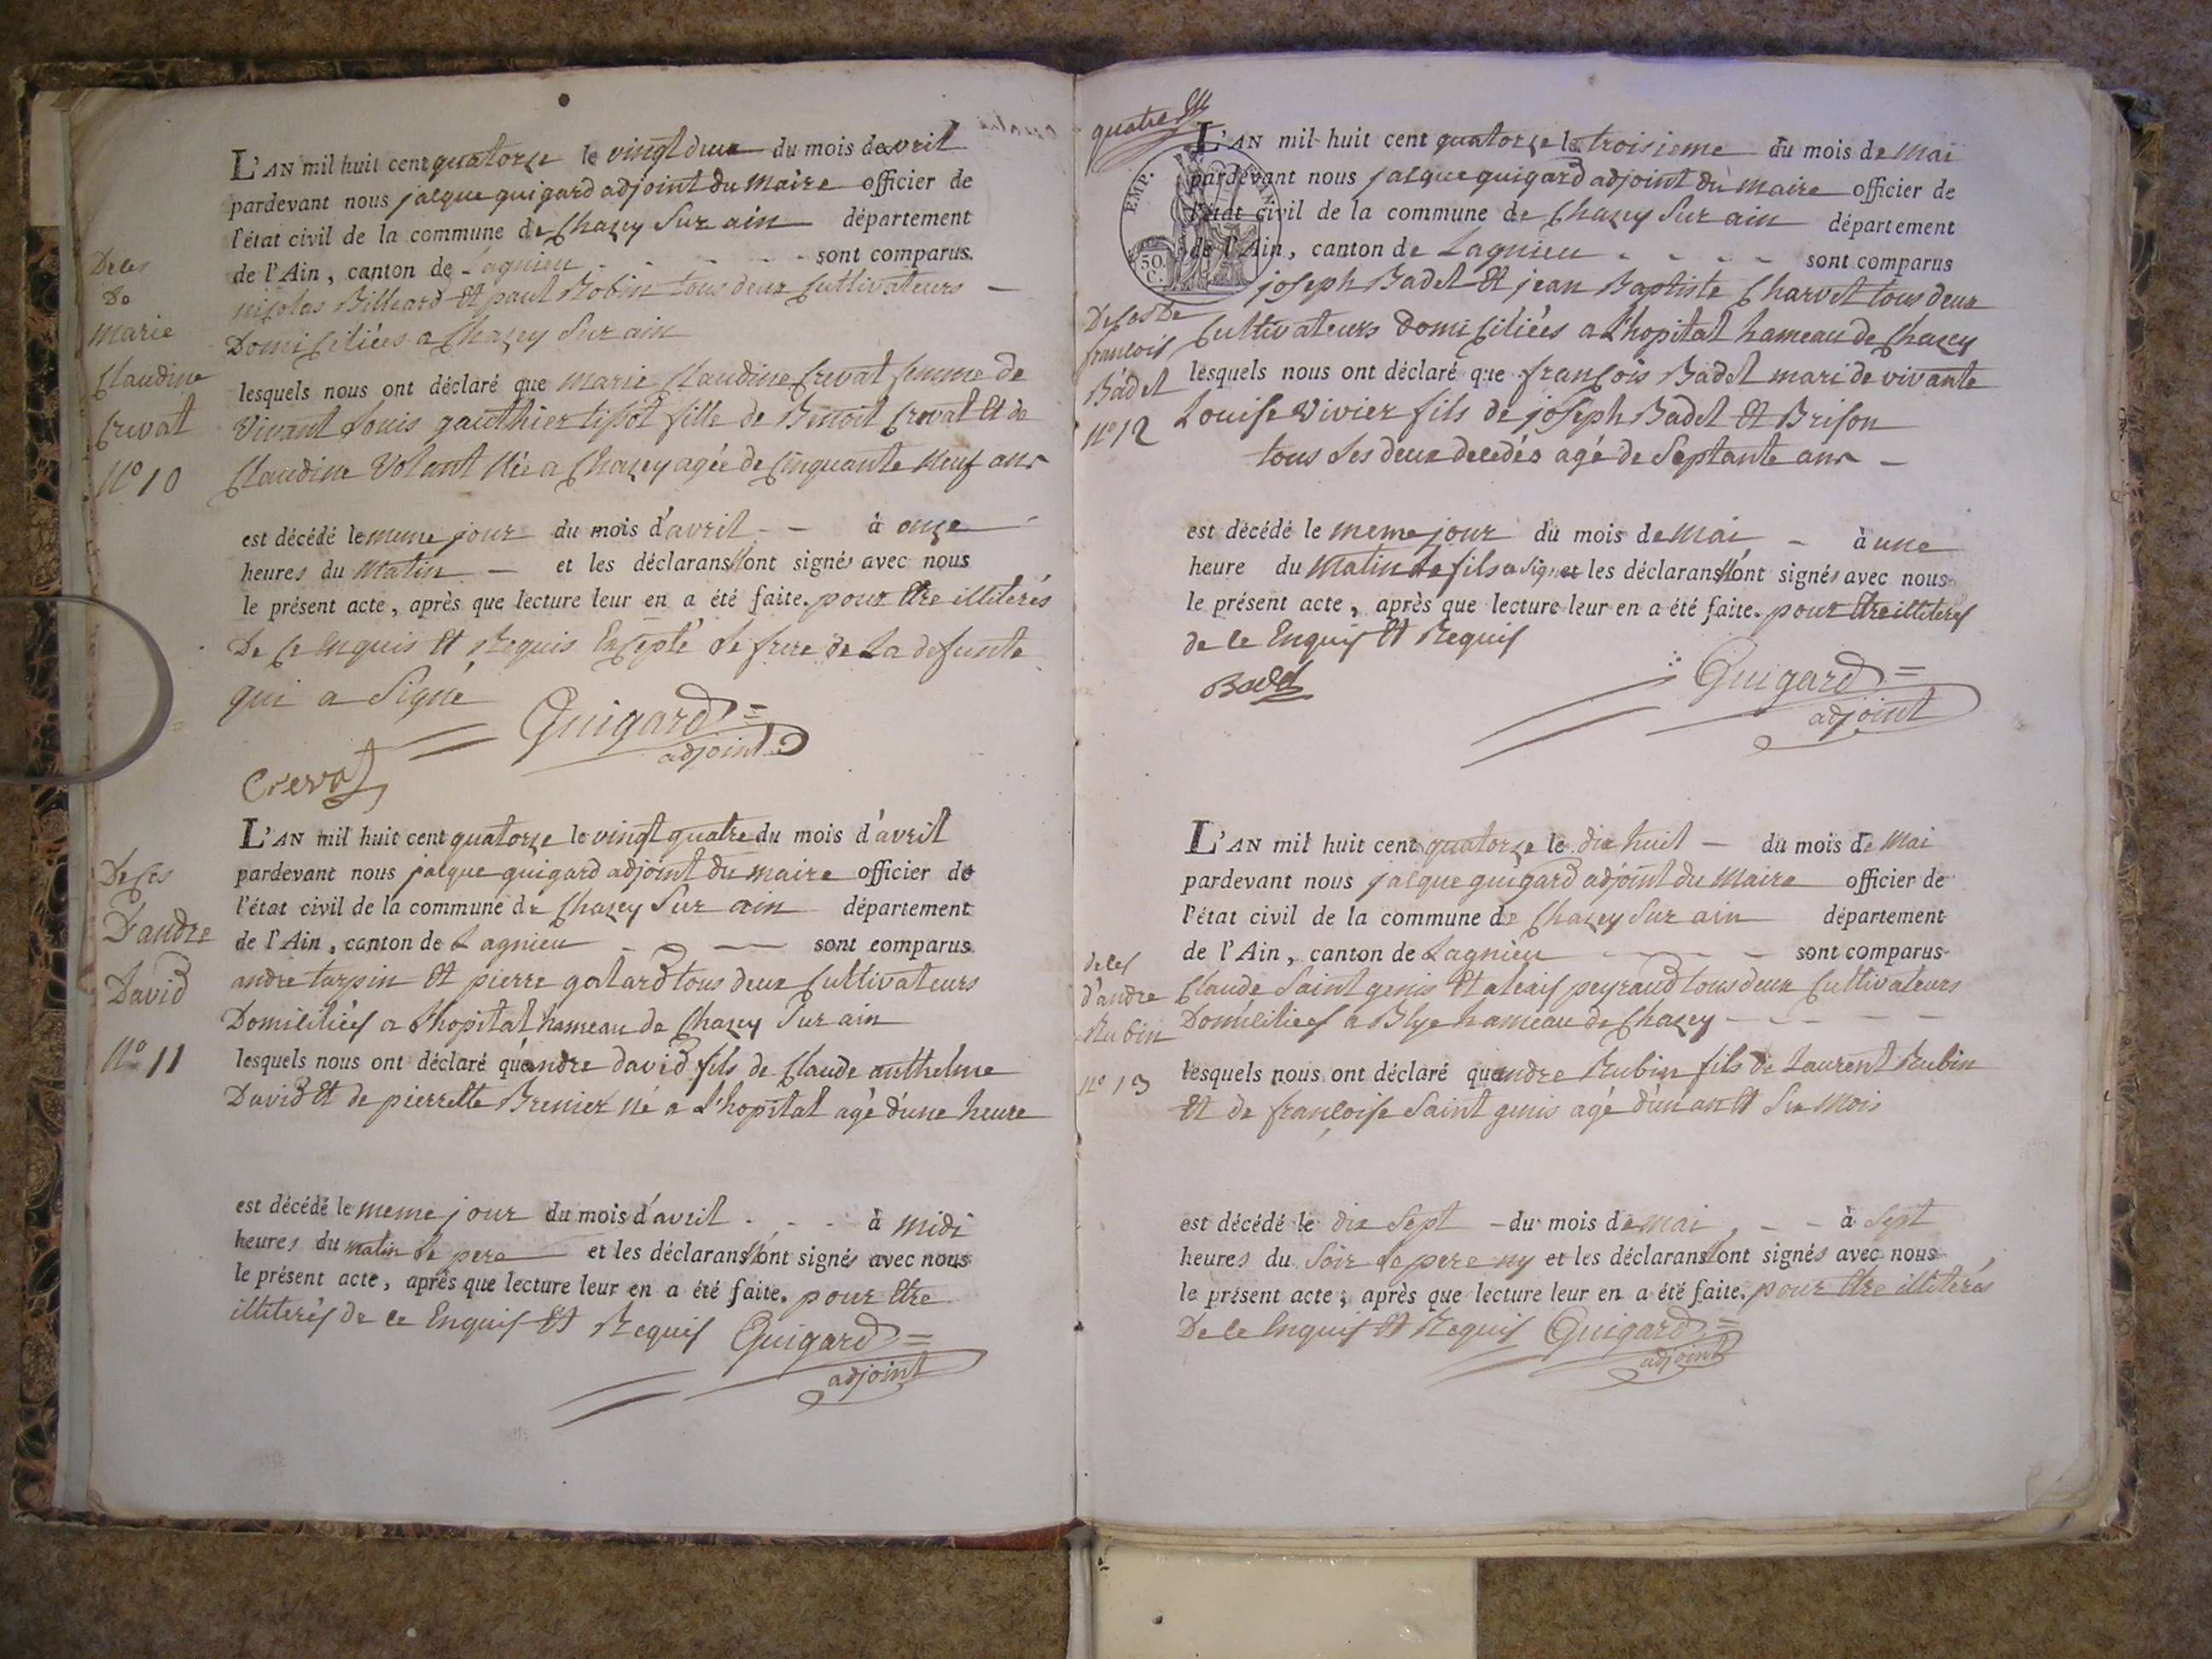 L'AN mil huit cent quatorze le vingt deux du mois davril
pardevant nous jacque guigard adjoint du maire officier de
l'état civil de la commune de Chazey Sur ain département
de l'Ain, canton de Lagnieu - - - - sont comparus.
nicolas Billiard et paul Robin tous deux Cultivateurs -
Domiciliées a Chazey Sur ain
lesquels nous ont déclaré que marie Claudine Crevat femme de
Vivant Louis gauthier tissot fille de Benoit Crevat et de
Claudine Volant Née a Chazey agée de Cinquante Neuf ans
est décédé le meme jour du mois d'avril - - à onze
heures du Matin - et les déclarans N'ont signés avec nous
le présent acte, après que lecture leur en a été faite. pour Etre illiterés
De Ce Enquis et Requis Excepté Le frere de La defunte
qui a Signé
Guigard
adjoint
Crevat
Deces
De
Marie
Claudine
Crevat
N° 10
L'AN mil huit cent quatorze le vingt quatre du mois d'avril
pardevant nous jacque guigard adjoint du maire officier de
l'état civil de la commune de Chazey Sur ain département
de l'Ain, canton de Lagnieu - - - sont comparus
andre turpin et pierre golard tous deux Cultivateurs
Domiciliés a L'hopital hameau de Chazey Sur ain
lesquels nous ont déclaré qu'andre david fils de Claude anthelme
David et de pierrette Brenier né a L'hopital agé d'une heure
est décédé le meme jour du mois d'avril - - - à midi
heures du matin Le pere et les déclarans N'ont signés avec nous
le présent acte, après que lecture leur en a été faite. pour Etre
illiterés de ce Enquis et Requis Guigard
adjoint
Deces
D'andre
David
N° 11
quatre
EMP.
50
C.
L'AN mil huit cent quatorze le troisieme du mois de Mai
pardevant nous jacque guigard adjoint du maire officier de
l'état civil de la commune de Chazey Sur ain département
de l'Ain, canton de Lagnieu - - - - sont comparus
joseph Badet et jean Baptiste Charvet tous deux
Cultivateurs Domiciliées a L'hopital hameau de Chazey
lesquels nous ont déclaré que françois Badet mari de vivante
Louise Vivier fils de joseph Badet et Brison
tous Les deux decedés agé de Septante ans -
est décédé le meme jour du mois de Mai - à une
heure du Matin Le fils a signé et les déclarans N'ont signés avec nous
le présent acte, après que lecture leur en a été faite. pour Etre illiterés
de ce Enquis et Requis
Badet
Guigard
adjoint
Deces De
françois
Badet
N° 12
L'AN mil huit cent quatorze le dix huit - du mois de Mai
pardevant nous jacque guigard adjoint du Maire officier de
l'état civil de la commune de Chazey Sur ain département
de l'Ain, canton de Lagnieu - - - - sont comparus
Claude Saint genis et alexis peyraud tous deux Cultivateurs
Domiciliés a Blye hameau de Chazey - - - -
lesquels nous ont déclaré quandre Rubin fils de Laurent Rubin
et de françoise Saint genis agé d'un an et Six Mois
est décédé le dix Sept - du mois de mai, - - à Sept
heures du Soir Le pere ny et les déclarans N'ont signés avec nous
le présent acte, après que lecture leur en a été faite. pour Etre illiterés
De ce Enquis et Requis Guigard
adjoint
deces
d'andre
Rubin
N° 13